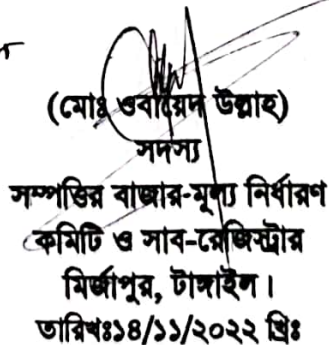 (মোঃ ওবায়েদ উল্লাহ)
সদস্য
সম্পত্তির বাজার-মূল্য নির্ধারণ
কমিটি ও সাব-রেজিস্ট্রার
মির্জাপুর, টাঙ্গাইল।
তারিখঃ১৪/১১/২০২২ খ্রিঃ